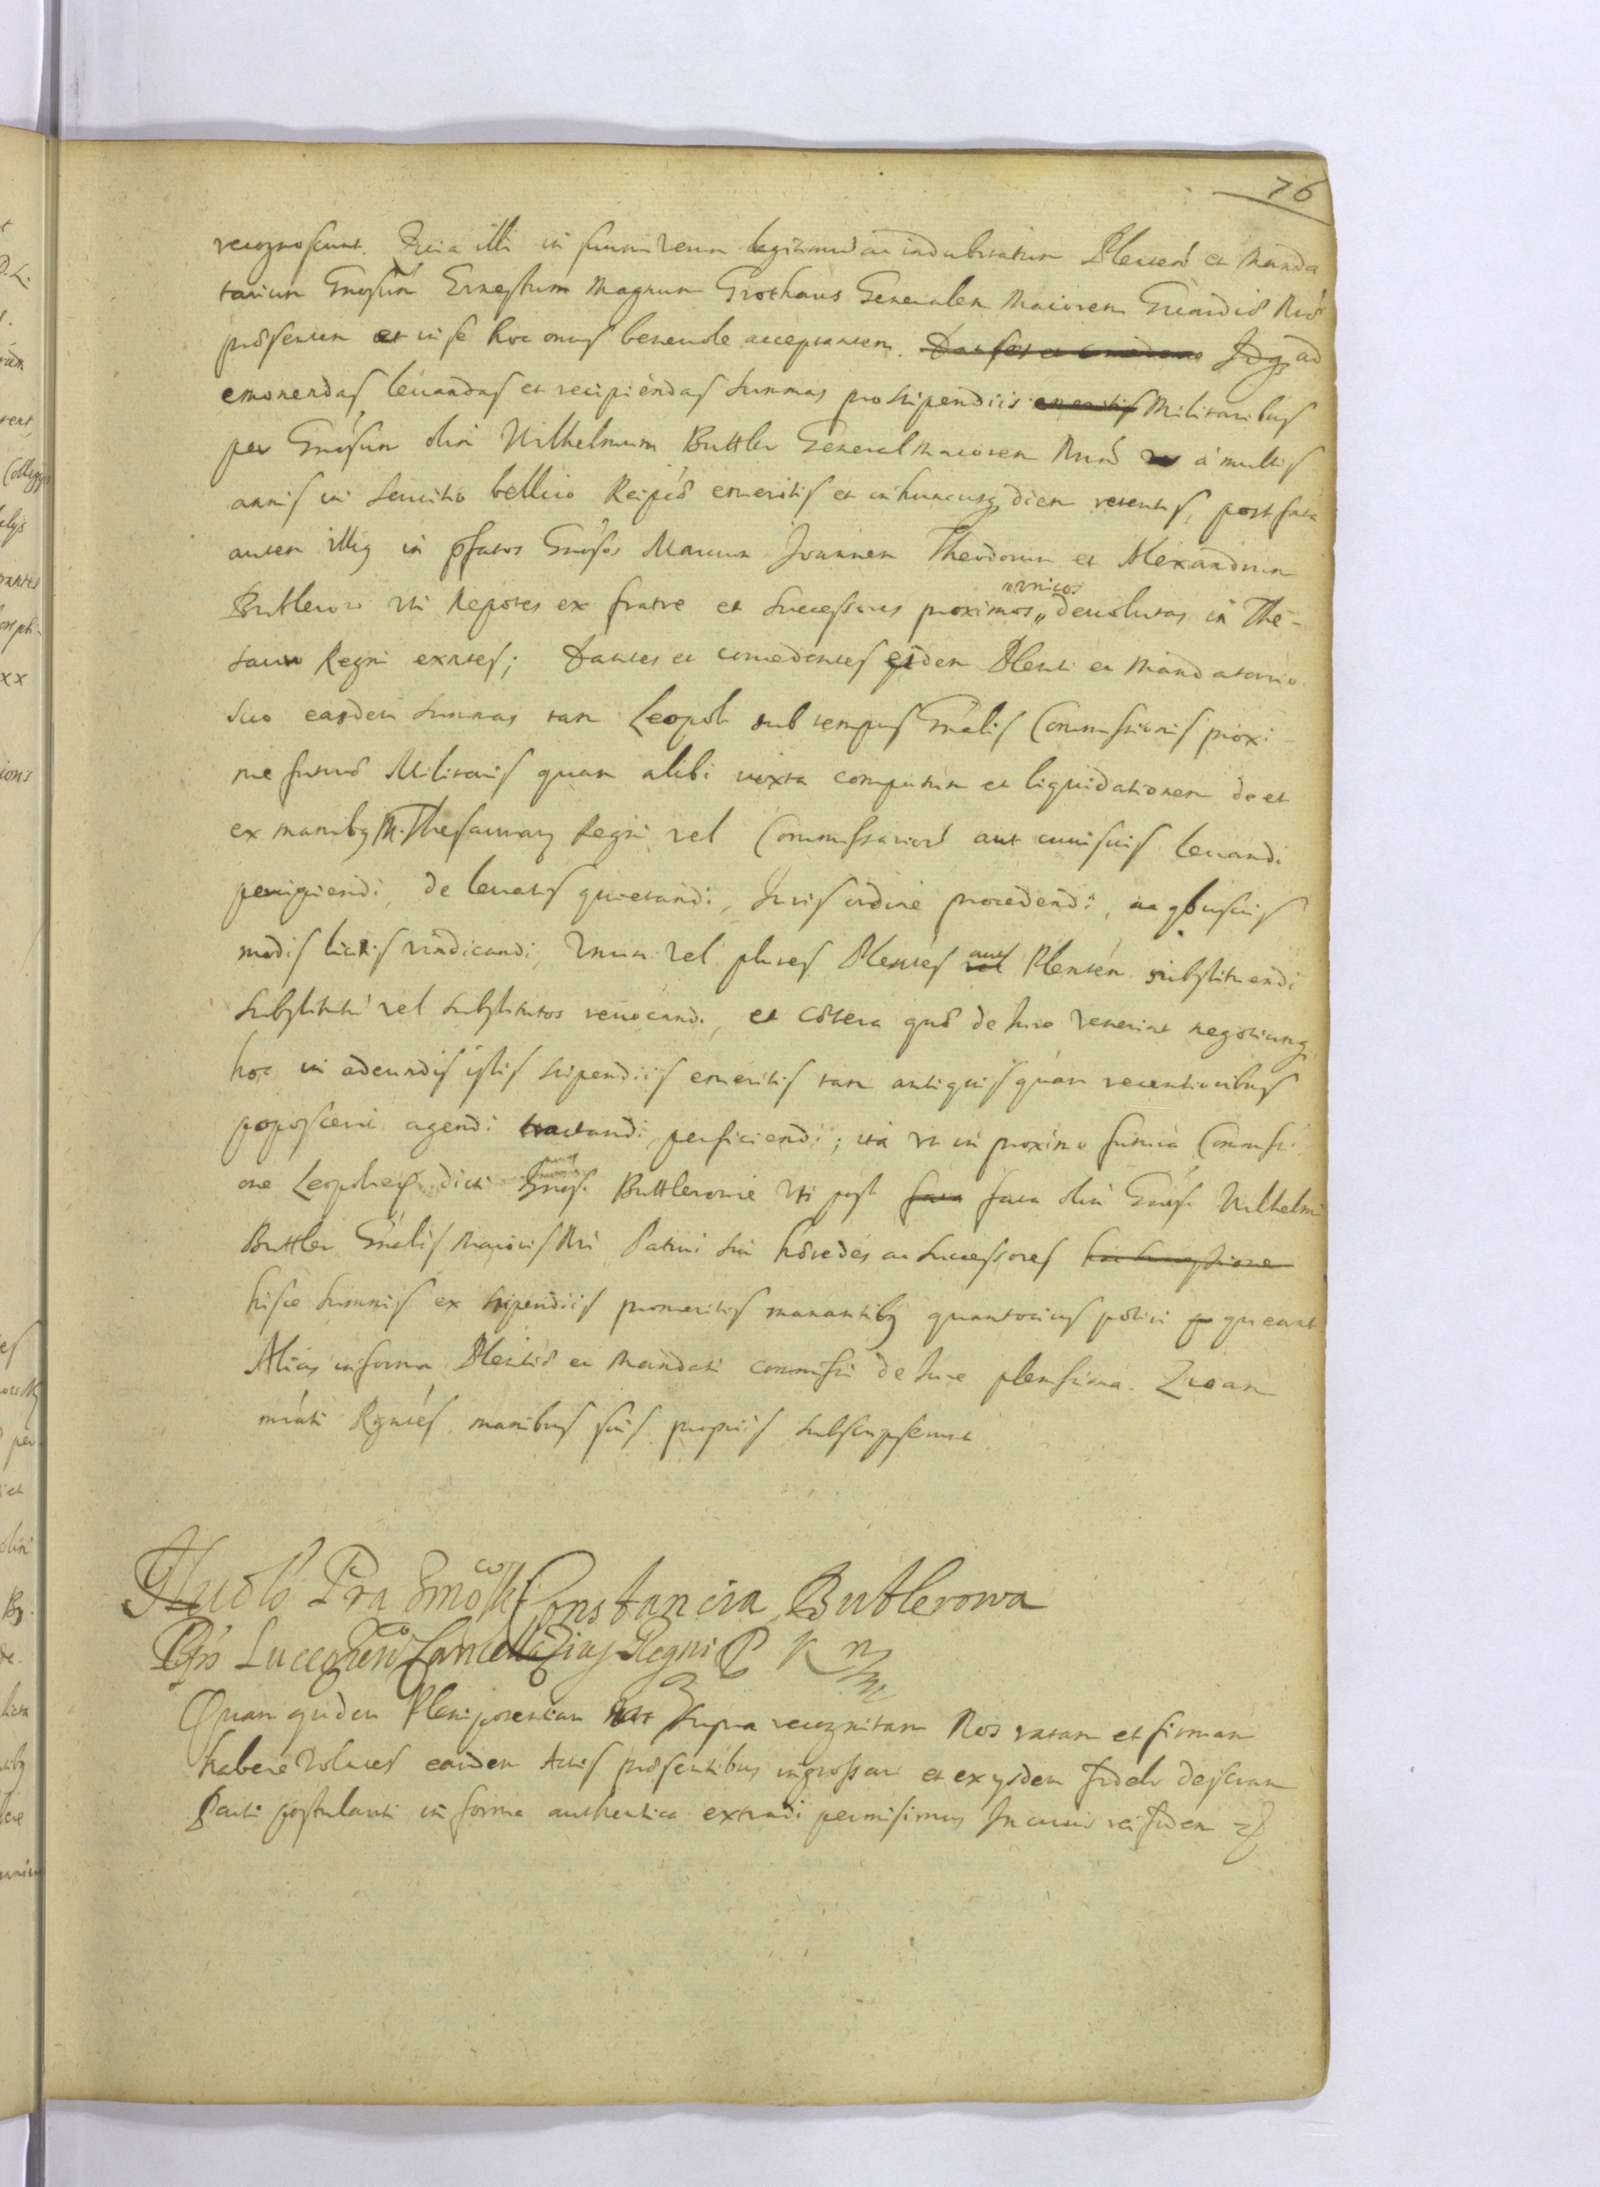 76
recognoscunt. Quia illi in suum verum legitimum ac indubitatum Plenen et Manda
tarium Gnosum Ernestum Magnum Grothaus Generalem Maiorem Guardiæ Næ
præsentem et in se hoc onus benevole acceptantem. Dantes et concedens Idq ad
emonendas levandas et recipiendas summas pro stipendiis emeritis Militaribus
per Gnosum olim Wilhelmum Buttler GeneralMaiorem Nrum à multis
annis in servitio bellico Reipcæ emeritis et in huncusq diem retentis, post fata
autem illius in pfatos Gnosos Marcum Joannem Theodorum et Alexandrum
Butlerow uti Nepotes ex fratre et successores proximos „ devolutas in The-
ac unicos
sauro Regni extntes; Dantes et concedentes eidem Plenti et Mandatario
suo easdem summas tam Leopoli sub tempus Gnalis Commissionis proxi
me futuræ Militaris quam alibi iuxta computum et liquidationem de et
ex manibq M. Thesaurarij Regni vel Commissarior aut cuiusvis levandi
percipiendi, de levatis quietandi, Iuris ordine procedendi, ac qbusvis
modis licitis vindicandi, Unum vel plures Plentes vel aut Plentem substituendi
substitutu vel substitutos revocandi, et cætera quæ de Iure venerint negotiumq
hoc in adeundis istis stipendiis emeritis tam antiquis quam recentioribus
poposcerit agendi tractandi perficiendi; ita ut in proximo futura Commissi
one Leopoliensi dicti Gnosi Buttlerowie uti post fata fata olim Gnosi Wilhelmi
Buttler Gnalis Maioris Nri Patrui sui hæredes ac successores
hisce summis ex stipendiis promeritis manantibq quantocius potiri queant
Alias in forma Plentiæ et Mandati commissi de Iure plenissima. Quam
mnti Rgntes manibus suis propriis subscripserunt
Constancia Butlerowa
Cancellarius Regni P K m
Quam quidem Plenipotentiam supra recognitam Nos ratam et firmam
habere volentes eandem Actis præsentibus ingrossari et ex ijsdem fideli descriam
Parti postulanti in forma authentica extradi permisimus In cuius rei fidem